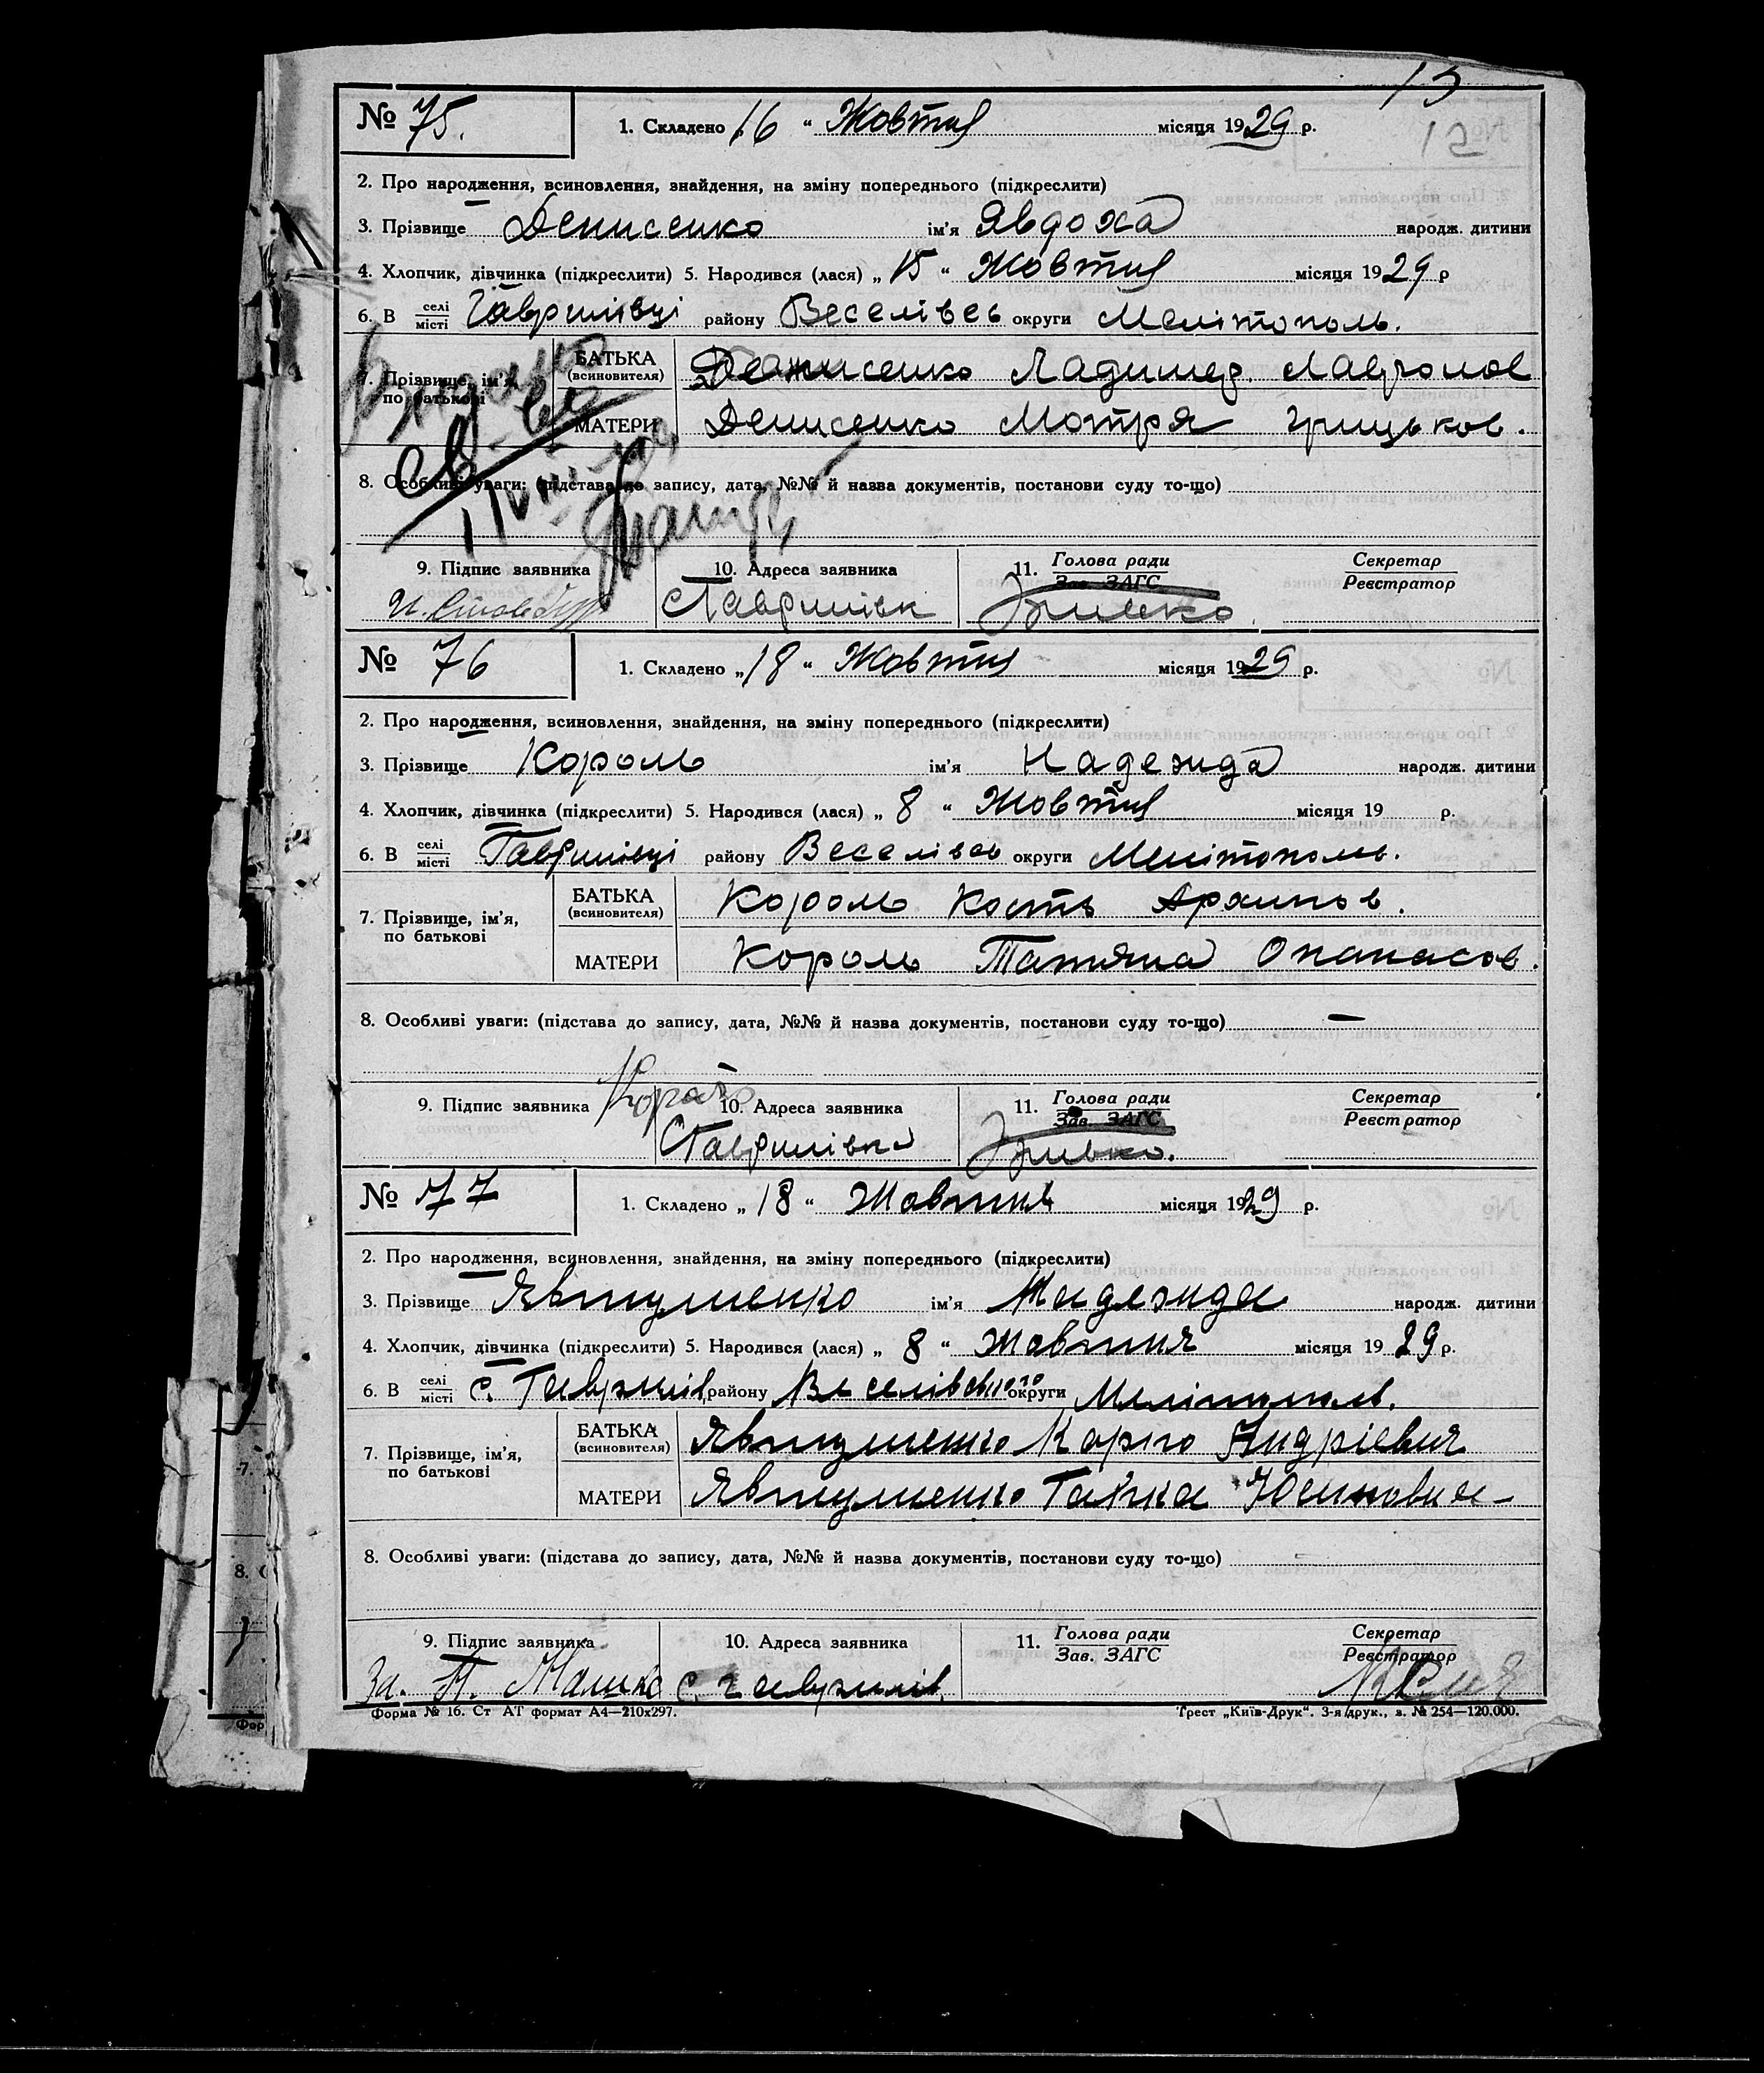 13
№ 75. 1. Складено 16 “ Жовтня місяця 1929 р.
2. Про народження, всиновлення, знайдення, на зміну попереднього (підкреслити)
3. Прізвище Денисенко ім’я Явдоха народж. дитини
4. Хлопчик, дівчинка (підкреслити) 5. Народився (лася) „ 15 “ Жовтня місяця 1929 р
6. В селі/місті Гаврилівці району Веселівсь округи Мелітополь.
7. Прізвище, ім’я, по батькові
БАТЬКА (всиновителя) Денисенко Ладимер
МАТЕРИ Денисенко Мотря Грицьков.
8. Особливі уваги: (підстава до запису, дата, №№ й назва документів, постанови суду то-що)
9. Підпис заявника 10. Адреса заявника 11. Голова ради/Зав. ЗАГС Секретар/Реєстратор
с Гаврилівк
№ 76 1. Складено „ 18 “ Жовтня місяця 1929 р.
2. Про народження, всиновлення, знайдення, на зміну попереднього (підкреслити)
3. Прізвище Король ім’я Надежда народж. дитини
4. Хлопчик, дівчинка (підкреслити) 5. Народився (лася) „ 8 “ Жовтня місяця 19 р.
6. В селі/місті Гаврилівці району Веселівсь округи Мелітополь.
7. Прізвище, ім’я, по батькові
БАТЬКА (всиновителя) Король Кость Архипов.
МАТЕРИ Король Татяна Опанасов.
8. Особливі уваги: (підстава до запису, дата, №№ й назва документів, постанови суду то-що) —
9. Підпис заявника 10. Адреса заявника 11. Голова ради/Зав. ЗАГС Секретар/Реєстратор
с Гаврилівка
№ 77 1. Складено „ 18 “ Жовтня місяця 1929 р.
2. Про народження, всиновлення, знайдення, на зміну попереднього (підкреслити)
3. Прізвище Явтушенко ім’я Надежда народж. дитини
4. Хлопчик, дівчинка (підкреслити) 5. Народився (лася) „ 8 “ Жовтня місяця 1929 р.
6. В селі/місті с. Гаврилів району Веселівського округи Мелітополь.
7. Прізвище, ім’я, по батькові
БАТЬКА (всиновителя) Явтушенко Карпо Андрієвич
МАТЕРИ Явтушенко Галька
8. Особливі уваги: (підстава до запису, дата, №№ й назва документів, постанови суду то-що)
9. Підпис заявника 10. Адреса заявника 11. Голова ради/Зав. ЗАГС Секретар/Реєстратор
За. с. Гаврилів.
Форма № 16. Ст АТ формат А4—210х297. Трест „Київ-Друк“. 3-я друк., з. № 254—120.000.